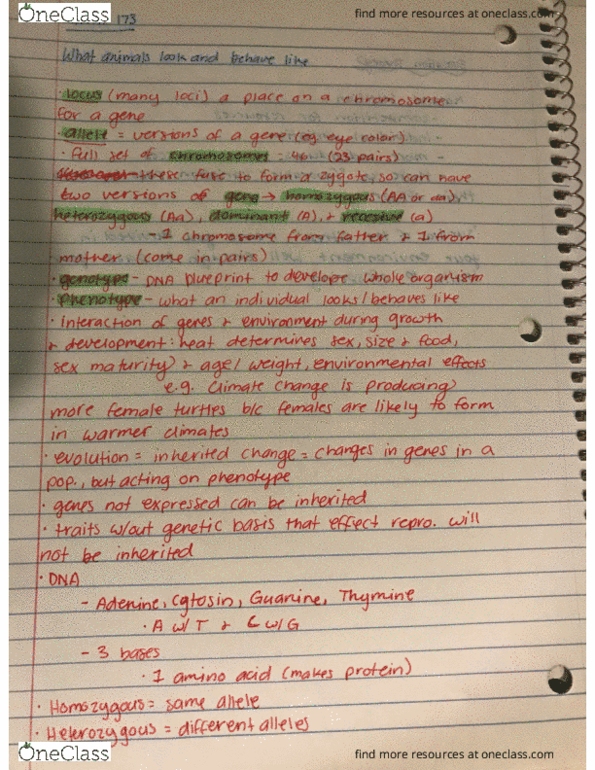 OneClass
find more resources at oneclass.com
173
What animals look and behave like
· locus (many loci) a place on a chromosome
for a gene
· allele = versions of a gene (eg. eye color)
· full set of chromosomes : 46 (23 pairs)
these fuse to form a zygote, so can have
two versions of gene → homozygous (AA or aa),
heterozygous (Aa), dominant (A), + recessive (a)
- 1 chromosome from father + 1 from
mother (come in pairs)
· genotype - DNA blueprint to develop whole organism
· phenotype - what an individual looks/behaves like
· interaction of genes + environment during growth
+ development: heat determines sex, size + food,
sex maturity) + age/weight, environmental effects
e.g. climate change is producing
more female turtles b/c females are likely to form
in warmer climates
· evolution = inherited change = changes in genes in a
pop., but acting on phenotype
· genes not expressed can be inherited
· traits w/out genetic basis that effect repro. will
not be inherited
· DNA
- Adenine, Cytosin, Guanine, Thymine
· A w/ T + C w/ G
- 3 bases
· 1 amino acid (makes protein)
· Homozygous = same allele
· Heterozygous = different alleles
OneClass
find more resources at oneclass.com